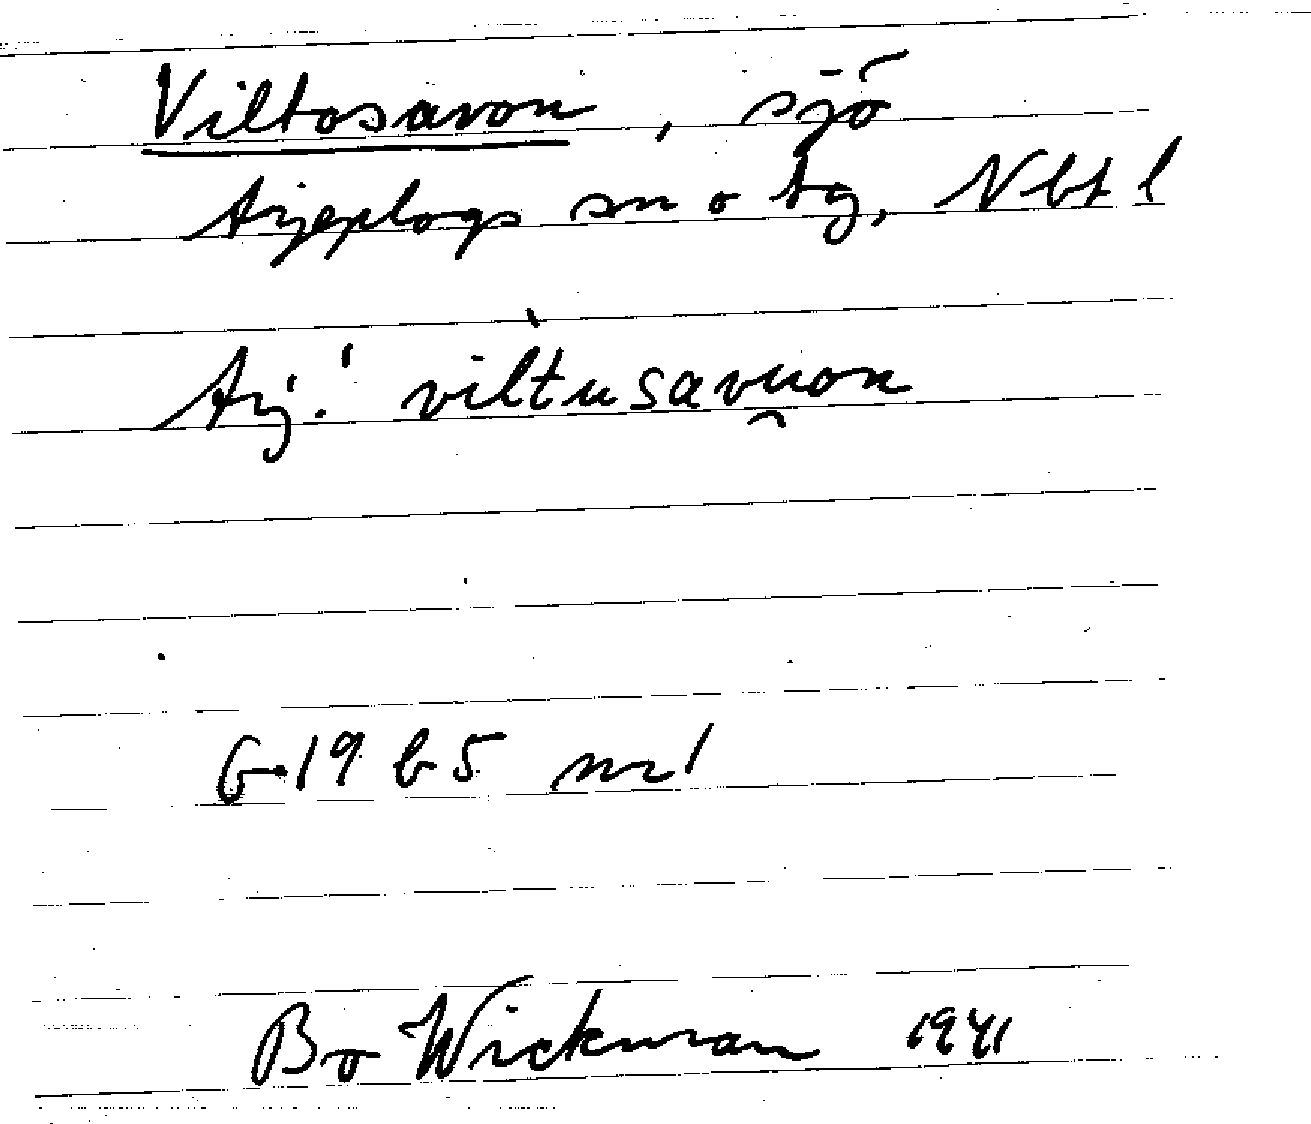 Viltosavon, sjö
Arjeplogs sn o tg, Nbt l
Arj: viltusavuon
G 19 b 5 nr 1
Bo Wickman 1941